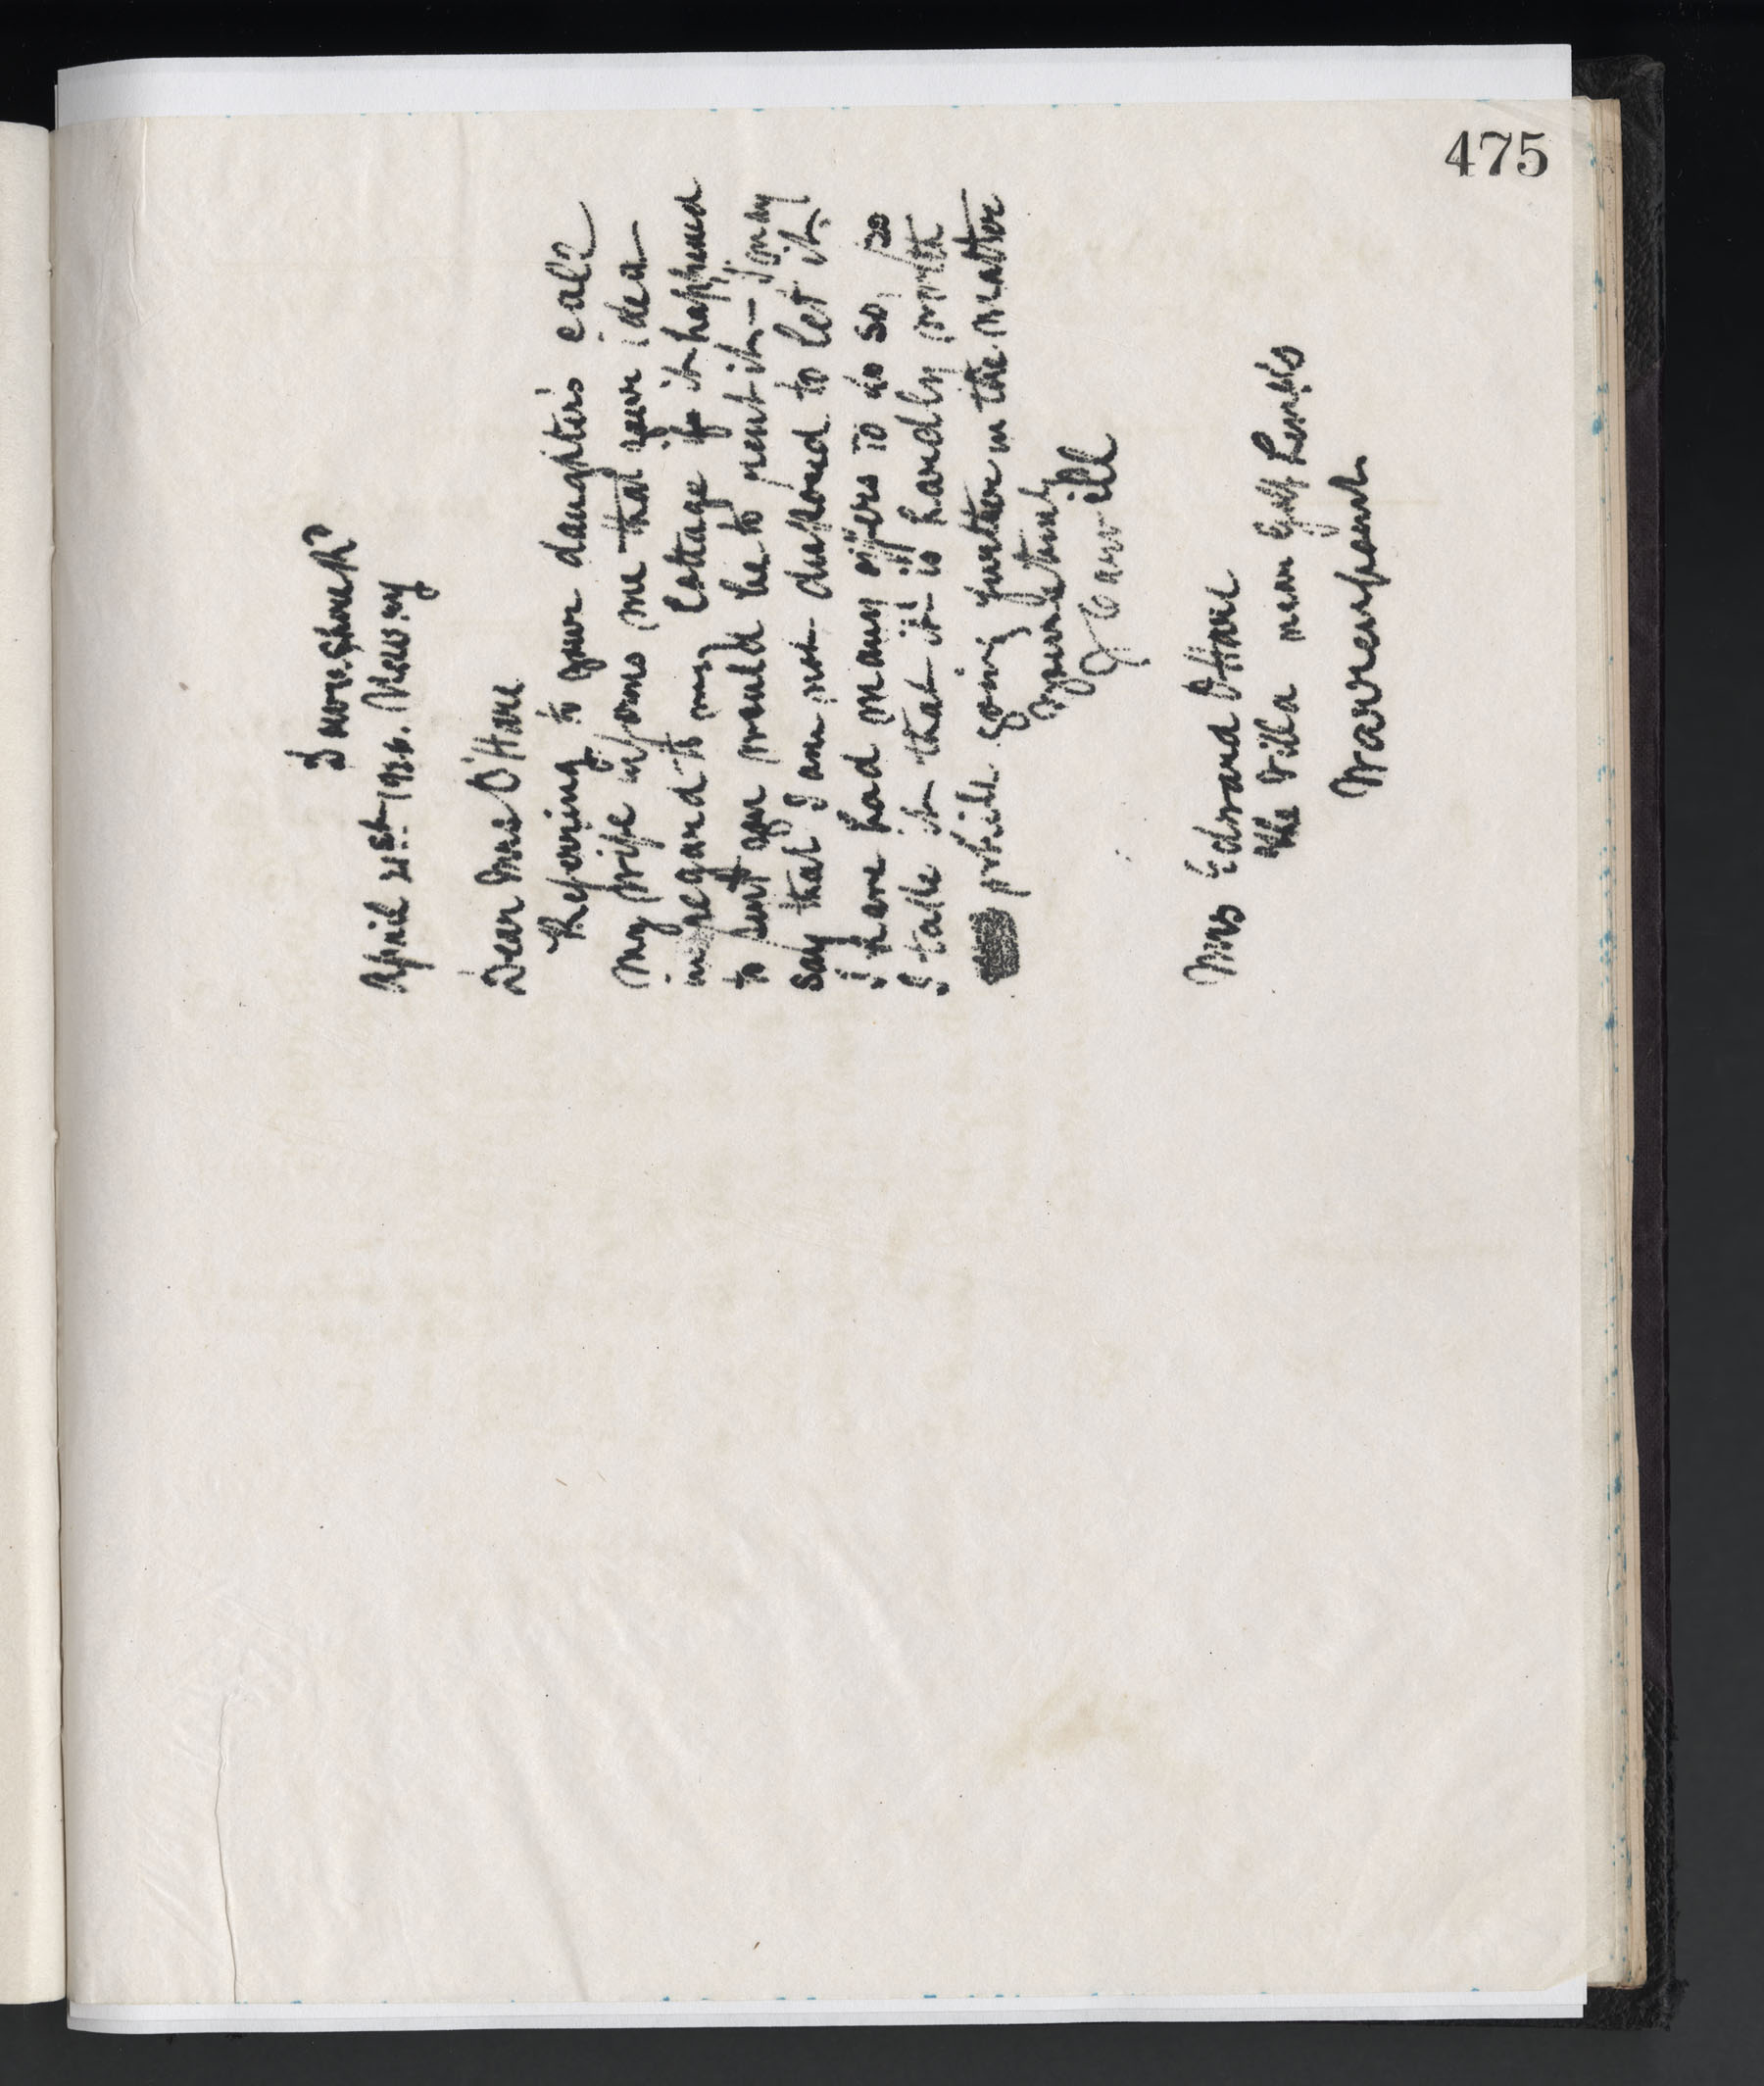 475
April 21st 1936. Newry
Dear Mrs O'Hare
Referring to your daughter's call
my wife informs me that your idea
in regard to my Cottage if it happened
to suit you would be to rent it – I may
say that I am not disposed to let it
I have had many offers to do so, so
I take it that it is hardly worth
while going further in the matter
Yours truly
Mrs Edward O'Hare
The Villa near Golf Links
Warrenpoint